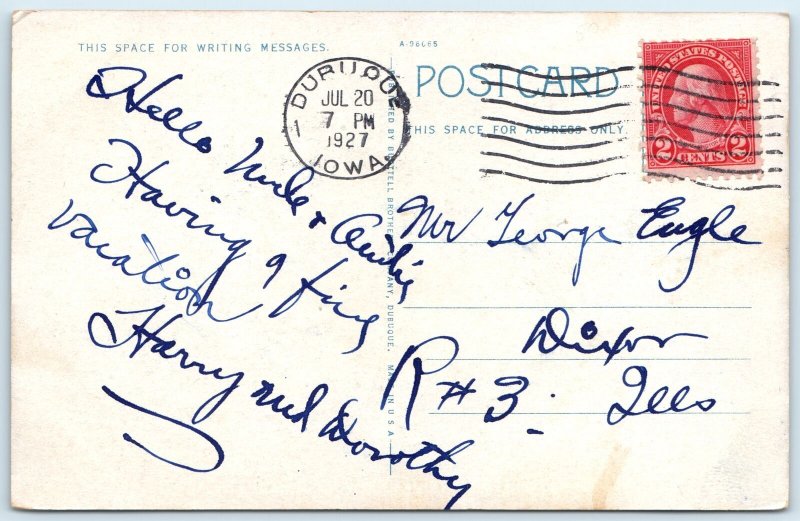 THIS SPACE FOR WRITING MESSAGES.
A-96665
POST CARD
THIS SPACE FOR ADDRESS ONLY.
DUBUQUE
JUL 20
7 PM
1927
IOWA
1
UNITED STATES POSTAGE
2 CENTS 2
BROTHERS COMPANY, DUBUQUE. MADE IN U S A
Hello Uncle + Auntie
Having a fine
vacation
Harry and Dorothy
Mr George Engle
Dixon
R # 3. Ills